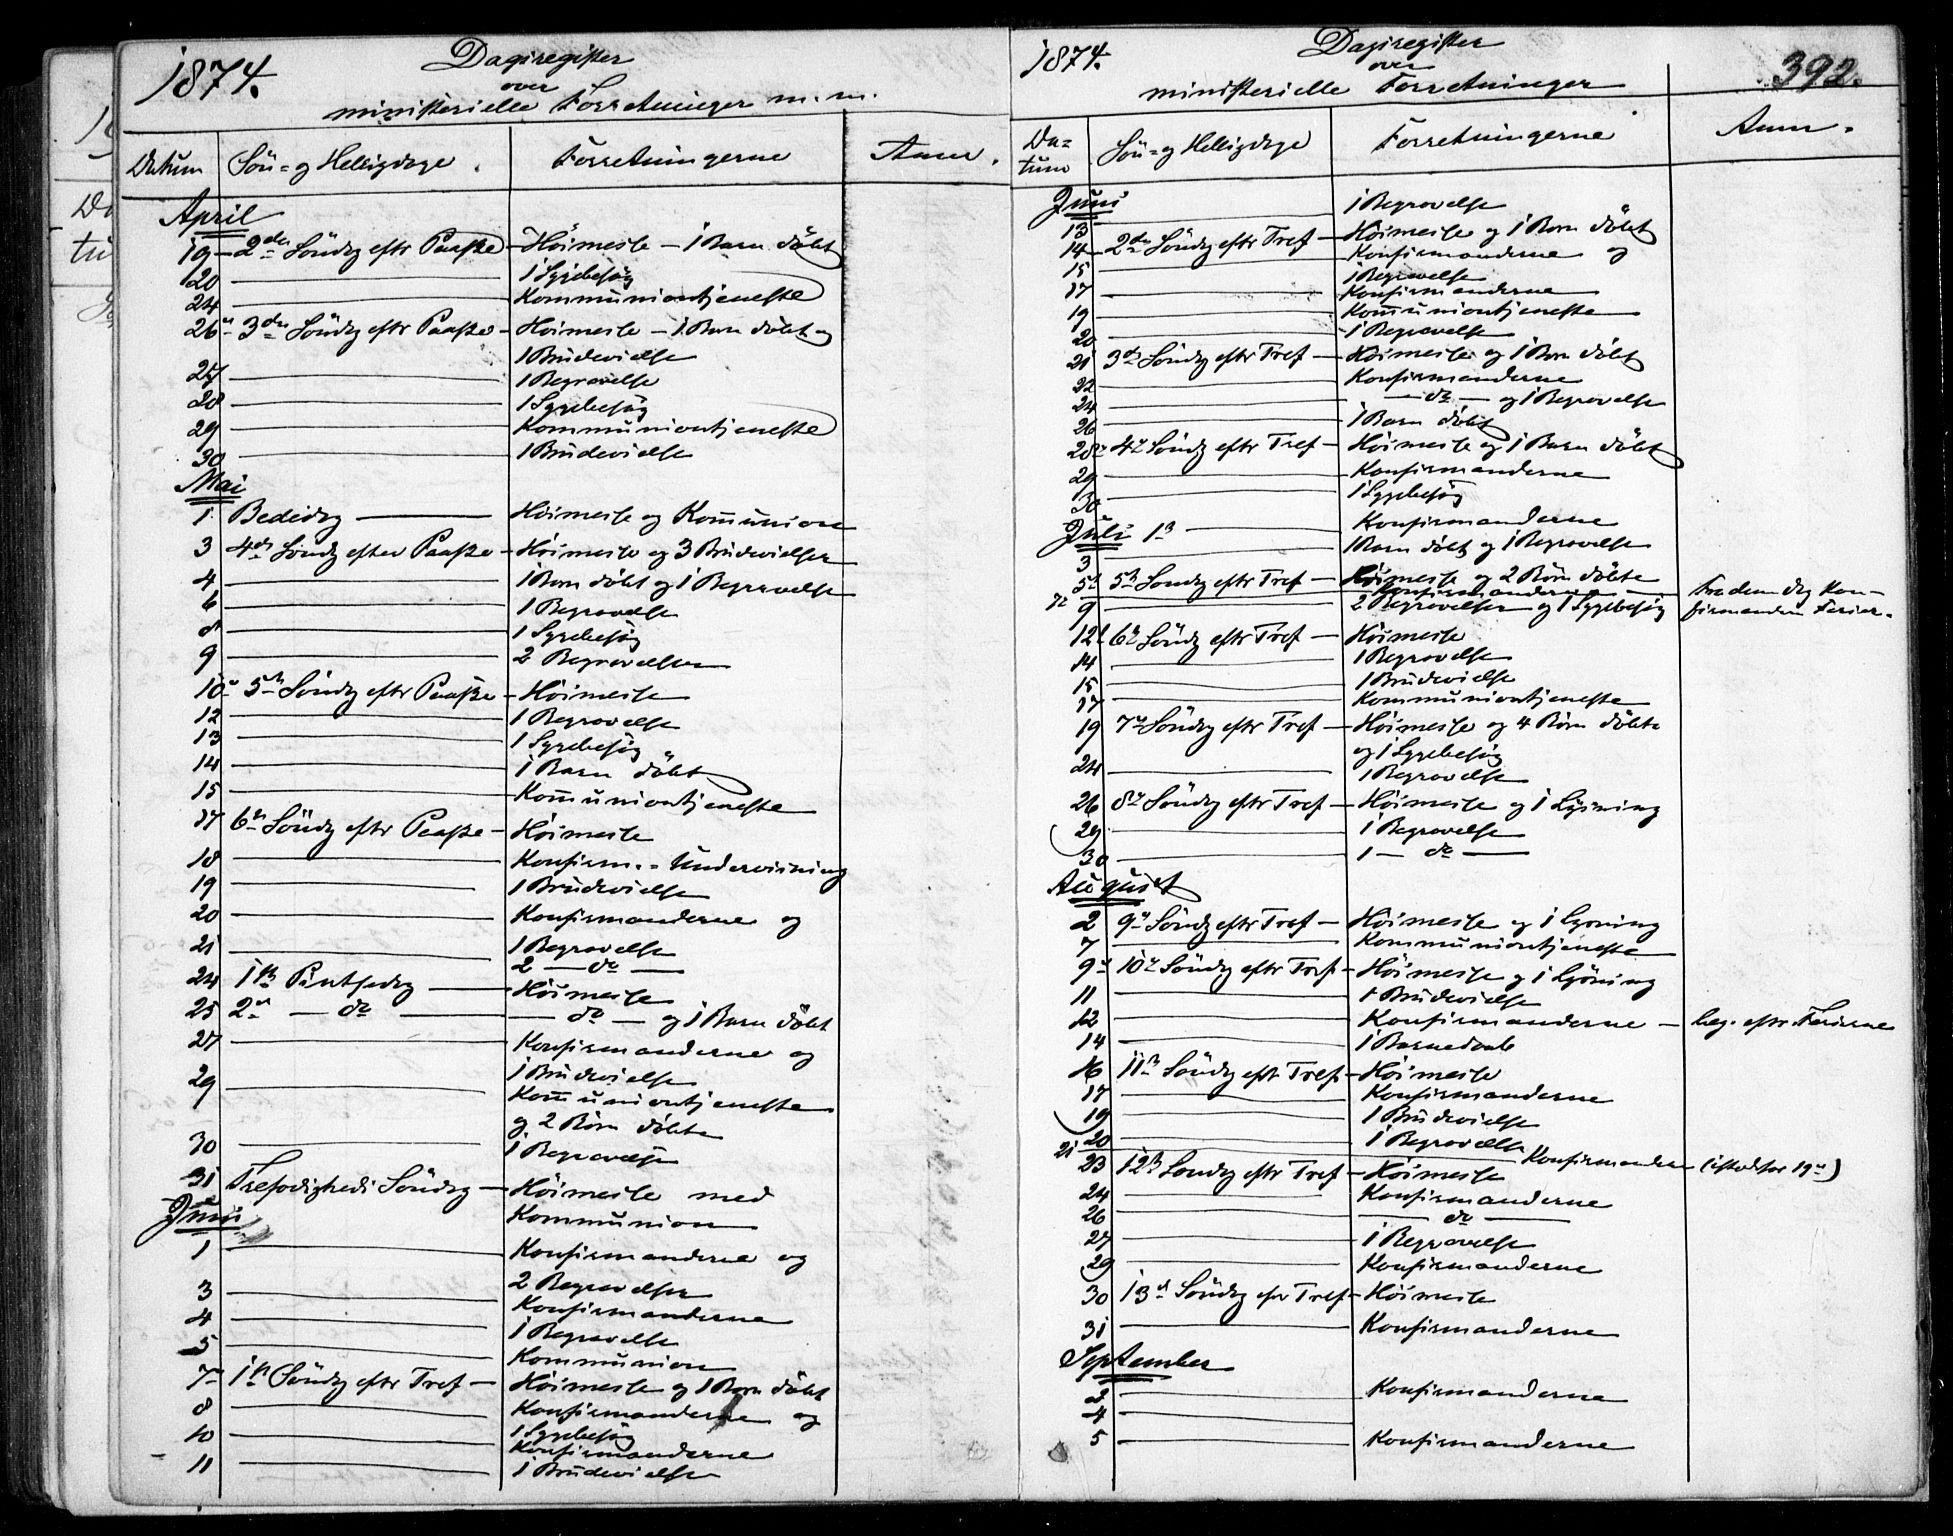 1874.
Dagsregister
over
ministerielle Forretninger m. m.
Datum Sön- og Helligdage. Forretningerne Anm.
April
19 2den Söndag eftr Paaske - Höimesse - 1 Barn döbt
20 1 Sygebesög
24 Kommuniontjeneste
26 3die Söndag eftr Paaske - Höimesse - 1 Barn döbt og
1 Brudevielse
27 1 Begravelse
28 1 Sygebesög
29 Kommuniontjeneste
30 1 Brudevielse
Mai
1 Bededag Höimesse og Kom̅union
3 4de Söndag efter Paaske - Höimesse og 3 Brudevielser
4 1 Barn döbt og 1 Begravelse
6 1 Begravelse
8 1 Sygebesög
9 2 Begravelser
10 5te Söndag eftr Paaske - Höimesse
12 1 Begravelse
13 1 Sygebesög
14 1 Barn döbt
15 Kom̅uniontjeneste
17 6te Söndag eftr Paaske - Höimesse
18 Konfirm.-Undervisning
19 1 Brudevielse
20 Konfirmanderne og
1 Begravelse
21 2 — do —
24 1ste Pintsedag Höimesse
25 2n — do — — do — og 1 Barn döbt
27 Konfirmanderne og
1 Brudevielse
29 Kom̅uniontjeneste
og 2 Börn döbte
30 1 Begravelse
31 Trefoldigheds Söndag - Höimesse med
Kommunion
Juni
1 Konfirmanderne og
2 Begravelser
3 Konfirmanderne
4 1 Begravelse
5 Kommunion
7 1ste Söndag eftr Tref - Höimesse og 1 Barn döbt
8 Konfirmanderne og
1 Sygebesög
10 Konfirmanderne
11 1 Brudevielse
1874.
Dagsregister
over
ministerielle Forretninger
392.
Da-
tum Sön- og Helligdage Forretningerne Anm.
Juni
13 1 Begravelse
14 2den Söndag eftr Tref - Höimesse og 1 Barn döbt
15 Konfirmanderne og
1 Begravelse
17 Konfirmanderne
19 Kom̅uniontjeneste
20 1 Begravelse
21 3die Söndag eftr Tref - Höimesse og 1 Barn döbt
22 Konfirmanderne
24 — do — og 1 Begravelse
26 1 Barn döbt
28 4de Söndag eftr Tref - Höimesse og 1 Barn döbt
29 Konfirmanderne
30 1 Sygebesög
Juli 1ste Konfirmanderne
3 1 Barn döbt og 1 Begravelse
5te 5te Söndag eftr Tref - Höimesse og 2 Börn döbte
7 Konfirmanderne - fra denne dag Kon-
9 2 Begravelser og 1 Sygebesög firmanderne Ferier.
12 6te Söndag eftr Tref - Höimesse
14 1 Begravelse
15 1 Brudevielse
17 Kommuniontjeneste
19 7de Söndag eftr Tref - Höimesse og 4 Börn döbte
og 1 Sygebesög
24 1 Begravelse
26 8de Söndag eftr Tref - Höimesse og 1 Lysning
29 1 Begravelse
30 1 — do —
August
2 9de Söndag eftr Tref - Höimesse og 1 Lysning
7 Kommuniontjeneste
9 10de Söndag eftr Tref - Höimesse og 1 Lysning
11 1 Brudevielse
12 Konfirmanderne - beg. eftr Ferierne
14 1 Barnedaab
16 11te Söndag eft Tref. - Höimesse
17 Konfirmanderne
19 1 Brudevielse
20 1 Begravelse
21 Konfirmanderne (istedetfor 19de)
23 12te Söndag eftr Tref - Höimesse
24 Konfirmanderne
26 — do —
27 1 Begravelse
29 Konfirmanderne
30 13de Söndag efter Tref - Höimesse
31 Konfirmanderne
September
2 Konfirmanderne
4
5 Konfirmanderne